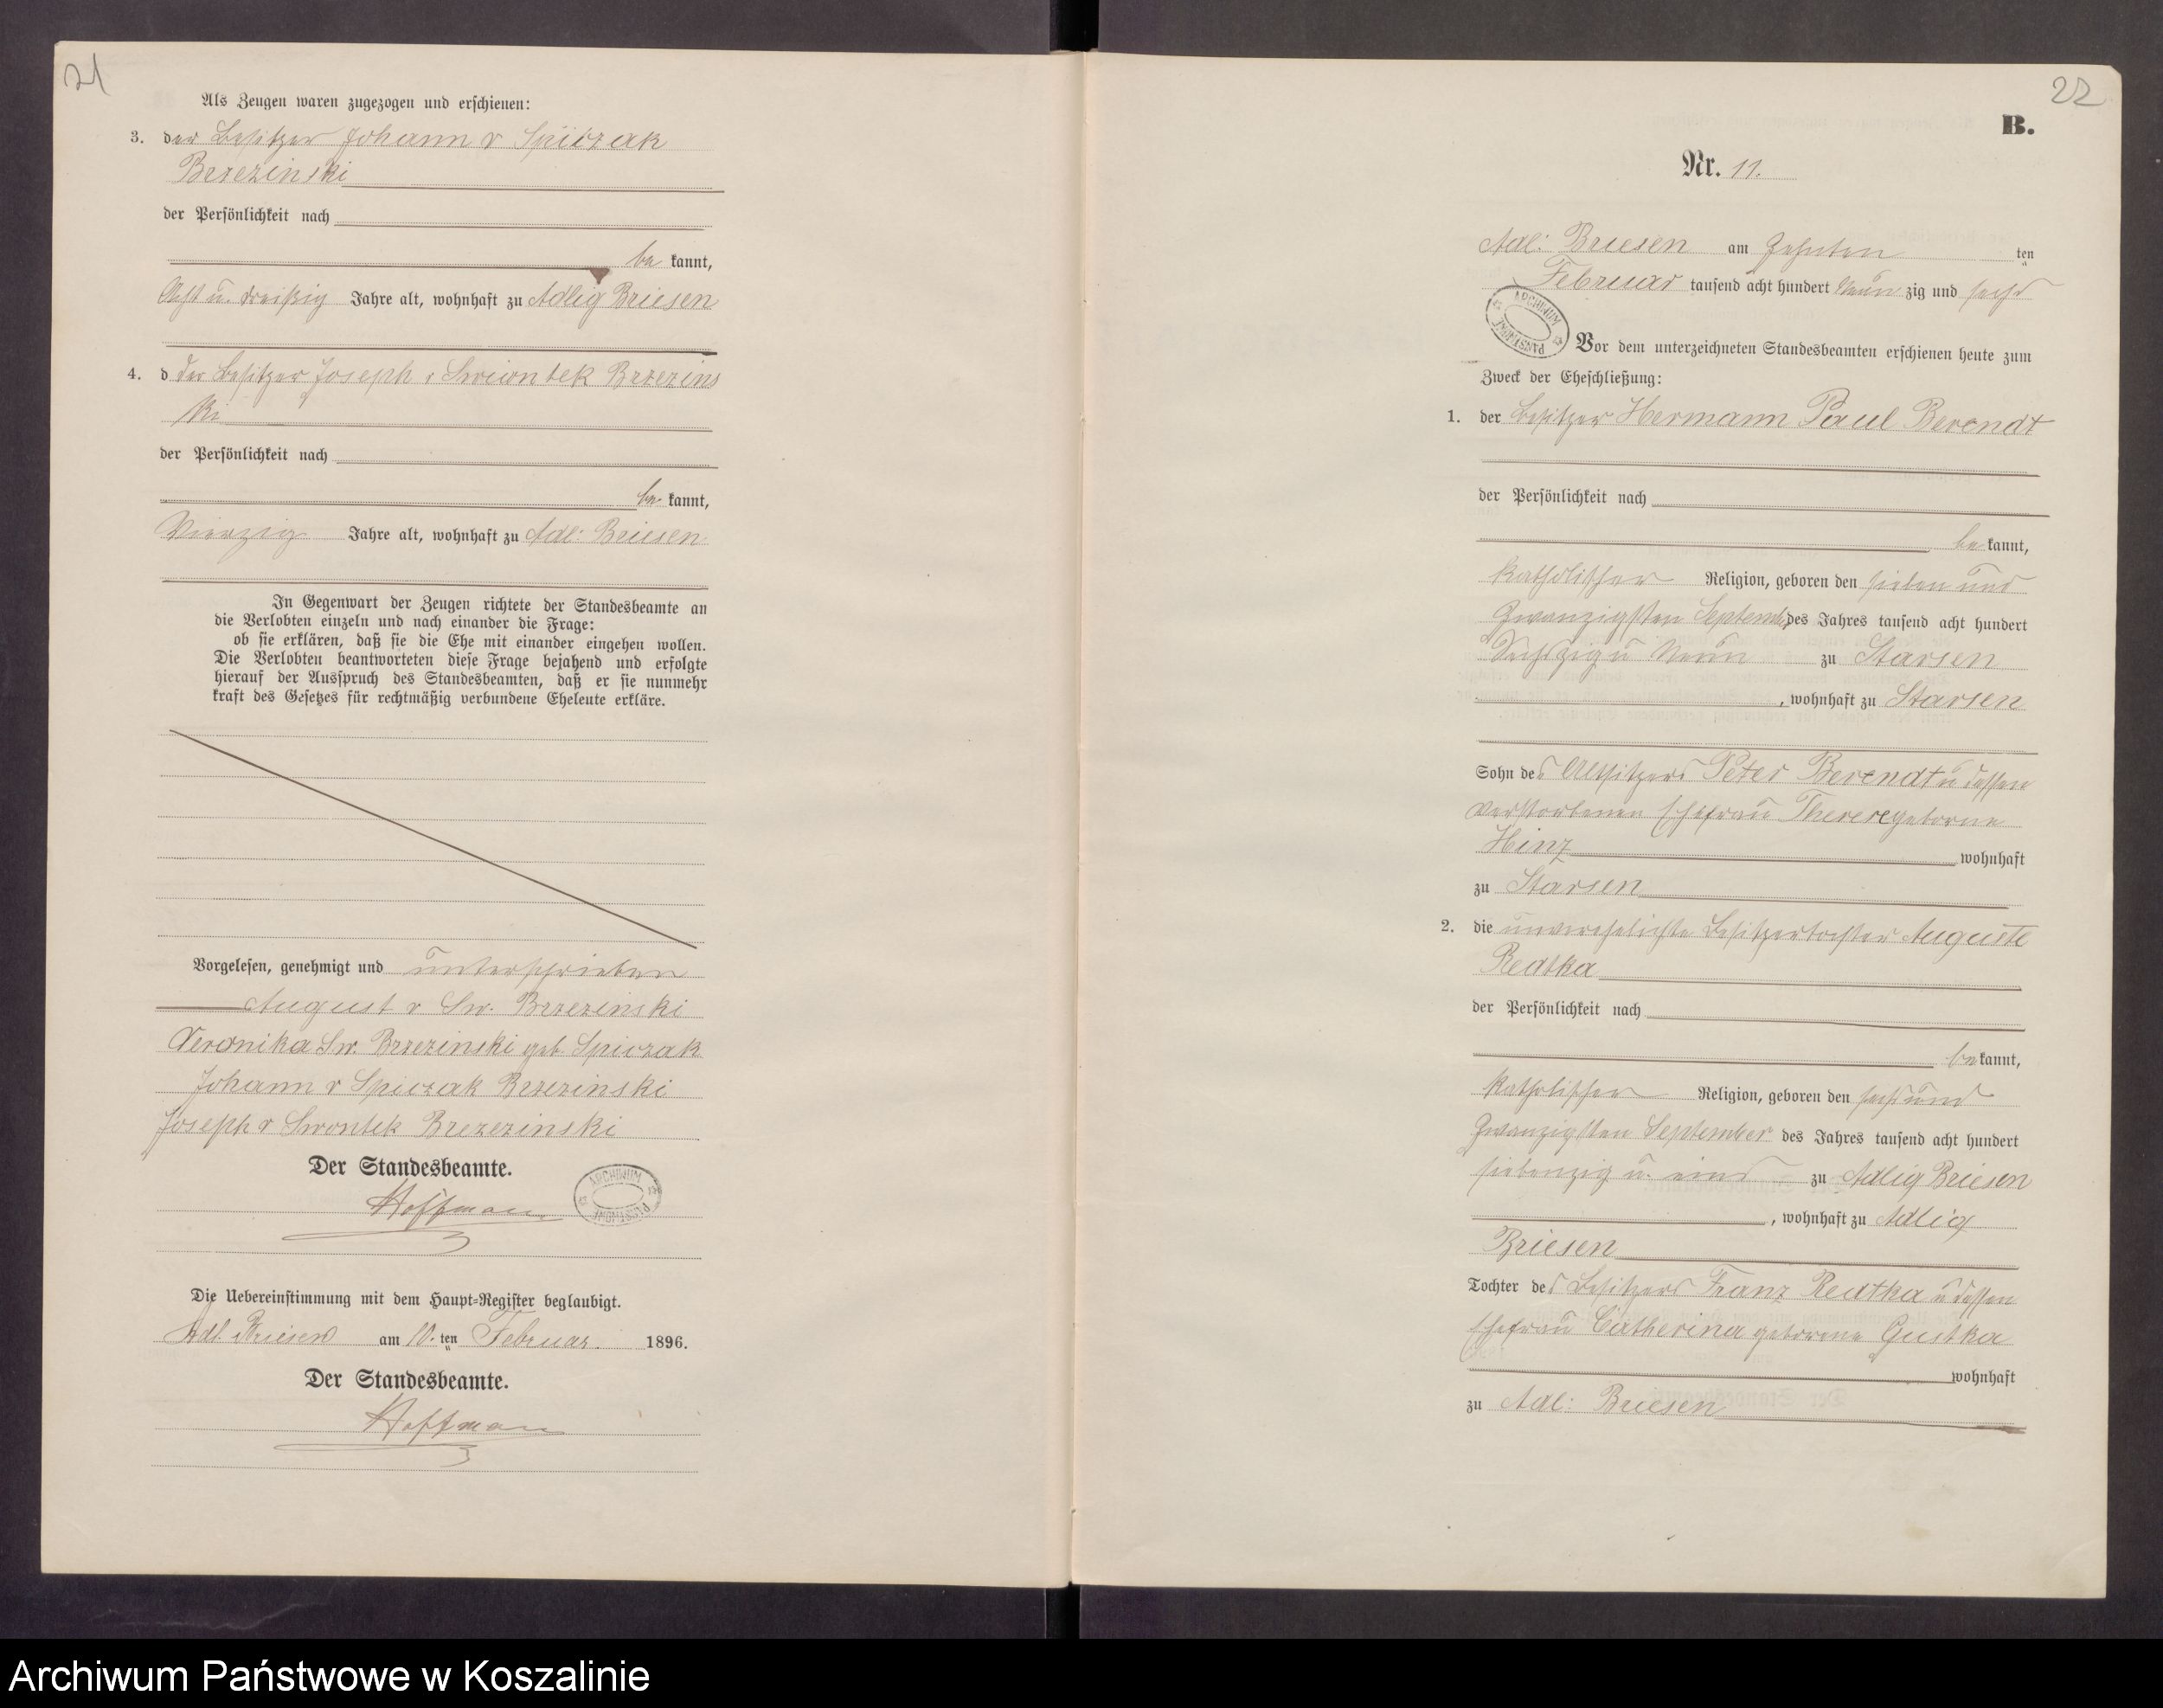 21
Als Zeugen waren zugezogen und erschienen:
3. der Besitzer Johann v Spiczak
Brzezinski
der Persönlichkeit nach
be kannt,
Acht u. dreißig Jahre alt, wohnhaft zu Adlig Briesen
4. d der Besitzer Joseph v Swiontek Brzezins
ki
der Persönlichkeit nach
be kannt,
Vierzig Jahre alt, wohnhaft zu Adl: Briesen
In Gegenwart der Zeugen richtete der Standesbeamte an
die Verlobten einzeln und nach einander die Frage:
ob sie erklären, daß sie die Ehe mit einander eingehen wollen.
Die Verlobten beantworteten diese Frage bejahend und erfolgte
hierauf der Ausspruch des Standesbeamten, daß er sie nunmehr
kraft des Gesetzes für rechtmäßig verbundene Eheleute erkläre.
Vorgelesen, genehmigt und unterschrieben
August v Sw. Brzezinski
Veronika Sw. Brzezinski geb Spiczak
Johann v Spiczak Brzezinski
Joseph v Swontek Brezezinski
Der Standesbeamte.
Hoffmann
ARCHIWUM PAŃSTWOWE
Die Uebereinstimmung mit dem Haupt-Register beglaubigt.
Adl. Briesen am 10. ten Februar. 1896.
Der Standesbeamte.
Hoffmann
22
B.
Nr. 11.
Adl: Briesen am Zehnten ten
Februar tausend acht hundert Neun zig und sechs
ARCHIWUM PAŃSTWOWE
Vor dem unterzeichneten Standesbeamten erschienen heute zum
Zweck der Eheschließung:
1. der Besitzer Hermann Paul Berendt
der Persönlichkeit nach
be kannt,
katholischer Religion, geboren den sieben und
Zwanzigsten September des Jahres tausend acht hundert
Sechszig u Neun zu Starsen
, wohnhaft zu Starsen
Sohn des Altsitzers Peter Berendt u dessen
verstorbenen Ehefrau Therese geborne
Hinz wohnhaft
zu Starsen
2. die unverehelichte Besitzertochter Auguste
Redtka
der Persönlichkeit nach
be kannt,
katholischer Religion, geboren den sechs und
Zwanzigsten September des Jahres tausend acht hundert
siebenzig u. eins zu Adlig Briesen
, wohnhaft zu Adlig
Briesen
Tochter des Besitzers Franz Redtka u dessen
Ehefrau Catherina geborene Gustka
wohnhaft
zu Adl: Briesen
Archiwum Państwowe w Koszalinie